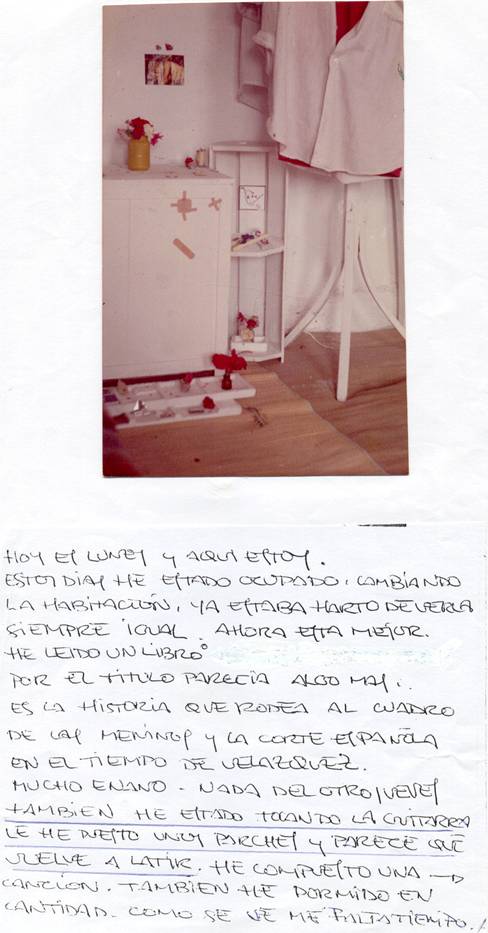 HOY ES LUNES Y AQUI ESTOY.
ESTOS DIAS HE ESTADO OCUPADO, CAMBIANDO
LA HABITACIÓN, YA ESTABA HARTO DE VERLA
SIEMPRE IGUAL. AHORA ESTA MEJOR.
HE LEIDO UN LIBRO
POR EL TITULO PARECIA ALGO MAS..
ES LA HISTORIA QUE RODEA AL CUADRO
DE LAS MENINAS Y LA CORTE ESPAÑOLA
EN EL TIEMPO DE VELAZQUEZ.
MUCHO ENANO. NADA DEL OTRO JUEVES
TAMBIEN HE ESTADO TOCANDO LA GUITARRA
LE HE PUESTO UNOS PARCHES Y PARECE QUE
VUELVE A LATIR. HE COMPUESTO UNA →
CANCION. TAMBIEN HE DORMIDO EN
CANTIDAD. COMO SE VE ME FALTA TIEMPO.!